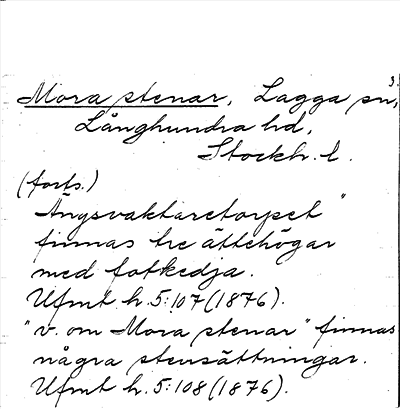 3.
Mora stenar, Lagga sn,
Långhundra hd,
Stockh. l.
(forts.)
Ängsvaktaretorpet"
finnas tre ättehögar
med fotkedja.
Ufmt h. 5:107 (1876).
"v. om Mora stenar" finnas
några stensättningar.
Ufmt h. 5:108 (1876).